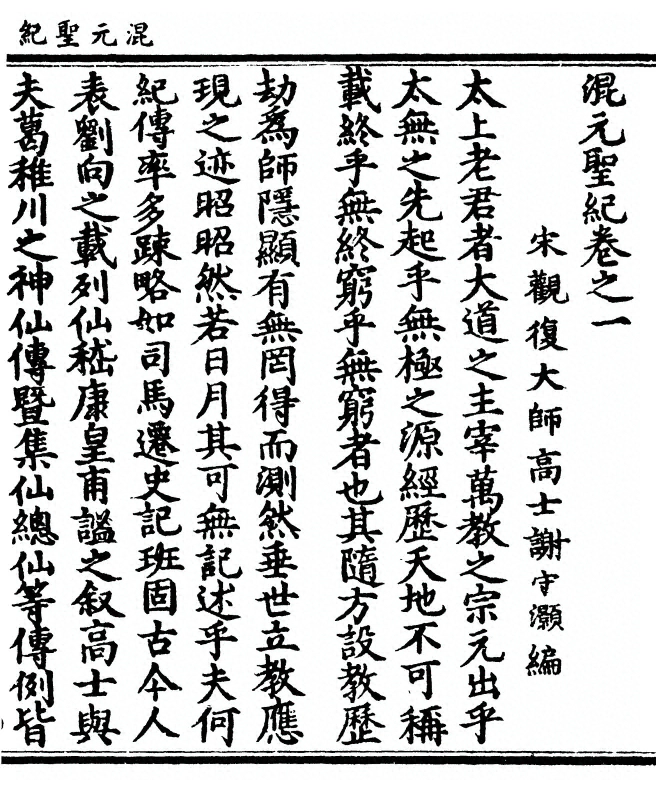 混元聖紀
混元聖紀卷之一
宋觀復大師高士謝守灝編
太上老君者大道之主宰萬教之宗元出乎
太無之先起乎無極之源經歷天地不可稱
載終乎無終窮乎無窮者也其隨方設教歷
劫為師隱顯有無罔得而測然垂世立教應
現之迹昭昭然若日月其可無記述乎夫何
紀傳率多踈略如司馬遷史記班固古今人
表劉向之載列仙嵇康皇甫謐之叙高士與
夫葛稚川之神仙傳暨集仙總仙等傳例皆